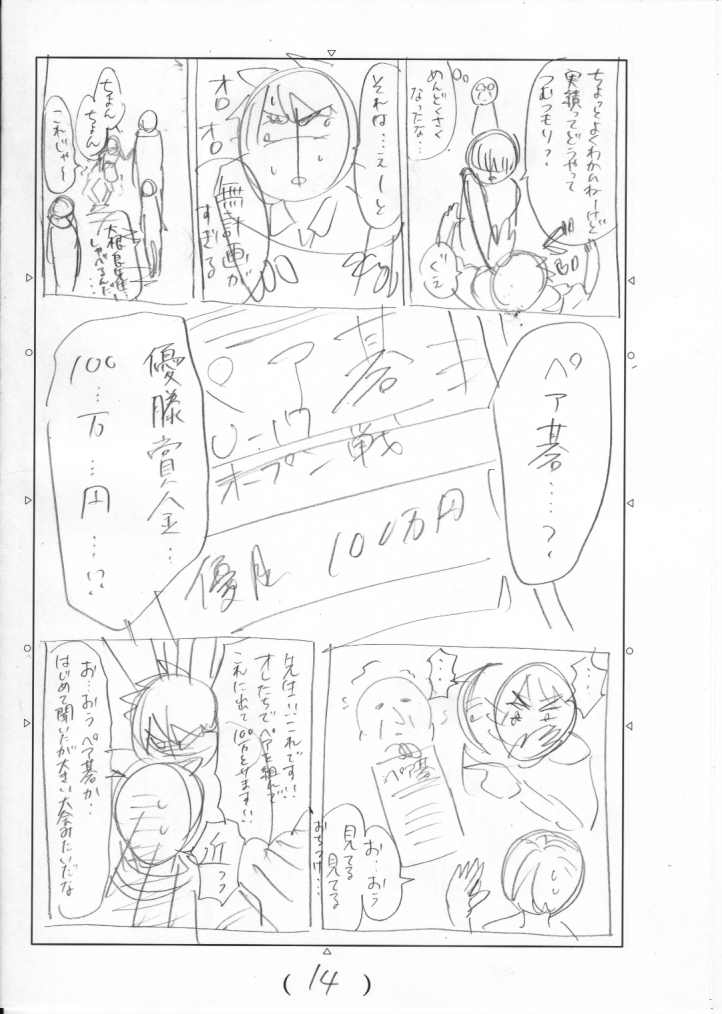 ちょっとよくわかんねーけど
実績ってどうやって
つむつもり?
めんどくさく
なったな…
ぐえ
それは…えーと
オロ
オロ
無計画が
すぎる
ちょん
ちょん
これじゃ~
ペア碁……?
ペア碁
U-17
オープン戦
優勝 100万円
優勝賞金…
100
…万…円…!?
…
…
ペア碁
お…おう
見てる
見てる
先生!!これです!!
オレたちでペアを組んで
これに出て100万とります!!
おちつけ…
近っ
お…おうペア碁か…
はじめて聞いたが大きい大会みたいだな
(14)